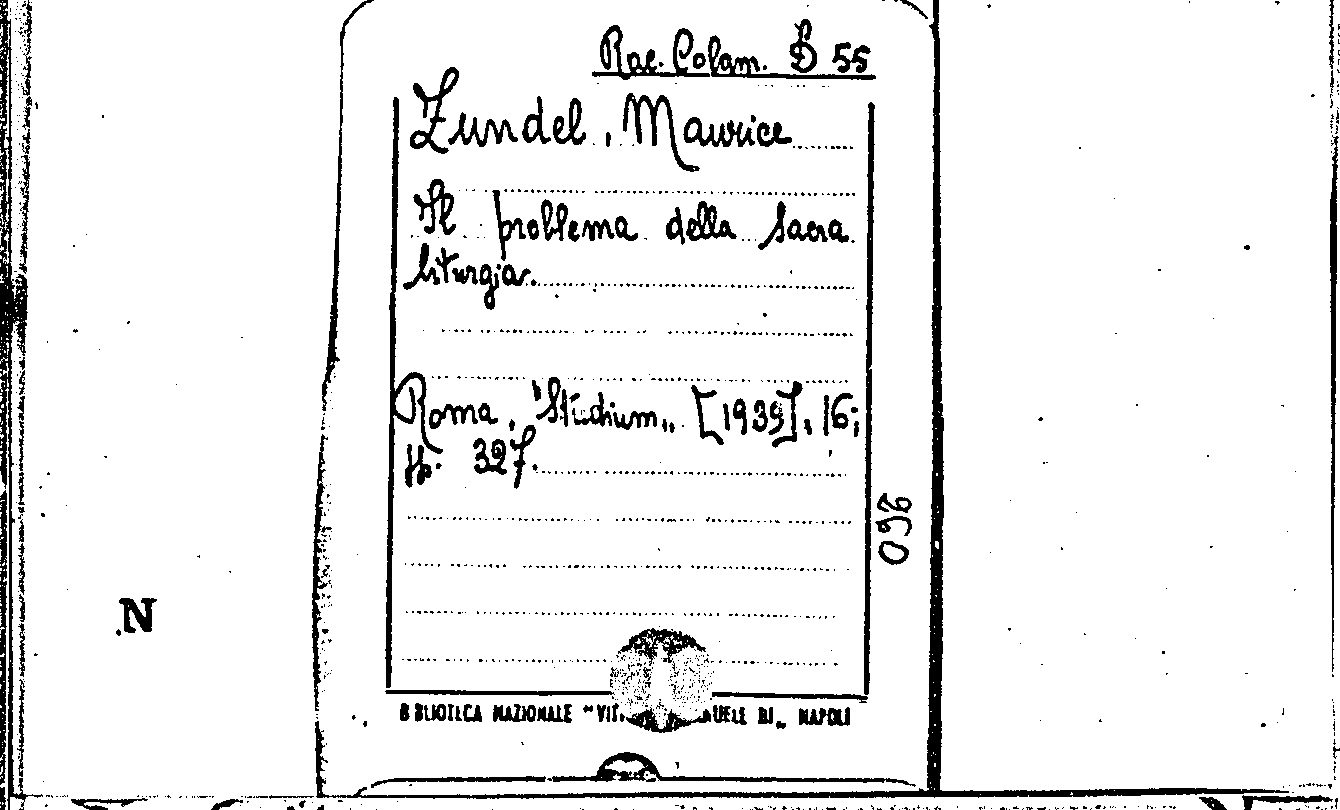 Rac. Colam. D 55
Zundel, Maurice
Il problema della sacra
liturgia.
Roma, "Studium„ [1939], 16;
pp. 327.
096
N
BIBLIOTECA NAZIONALE "VITT UELE III„ NAPOLI